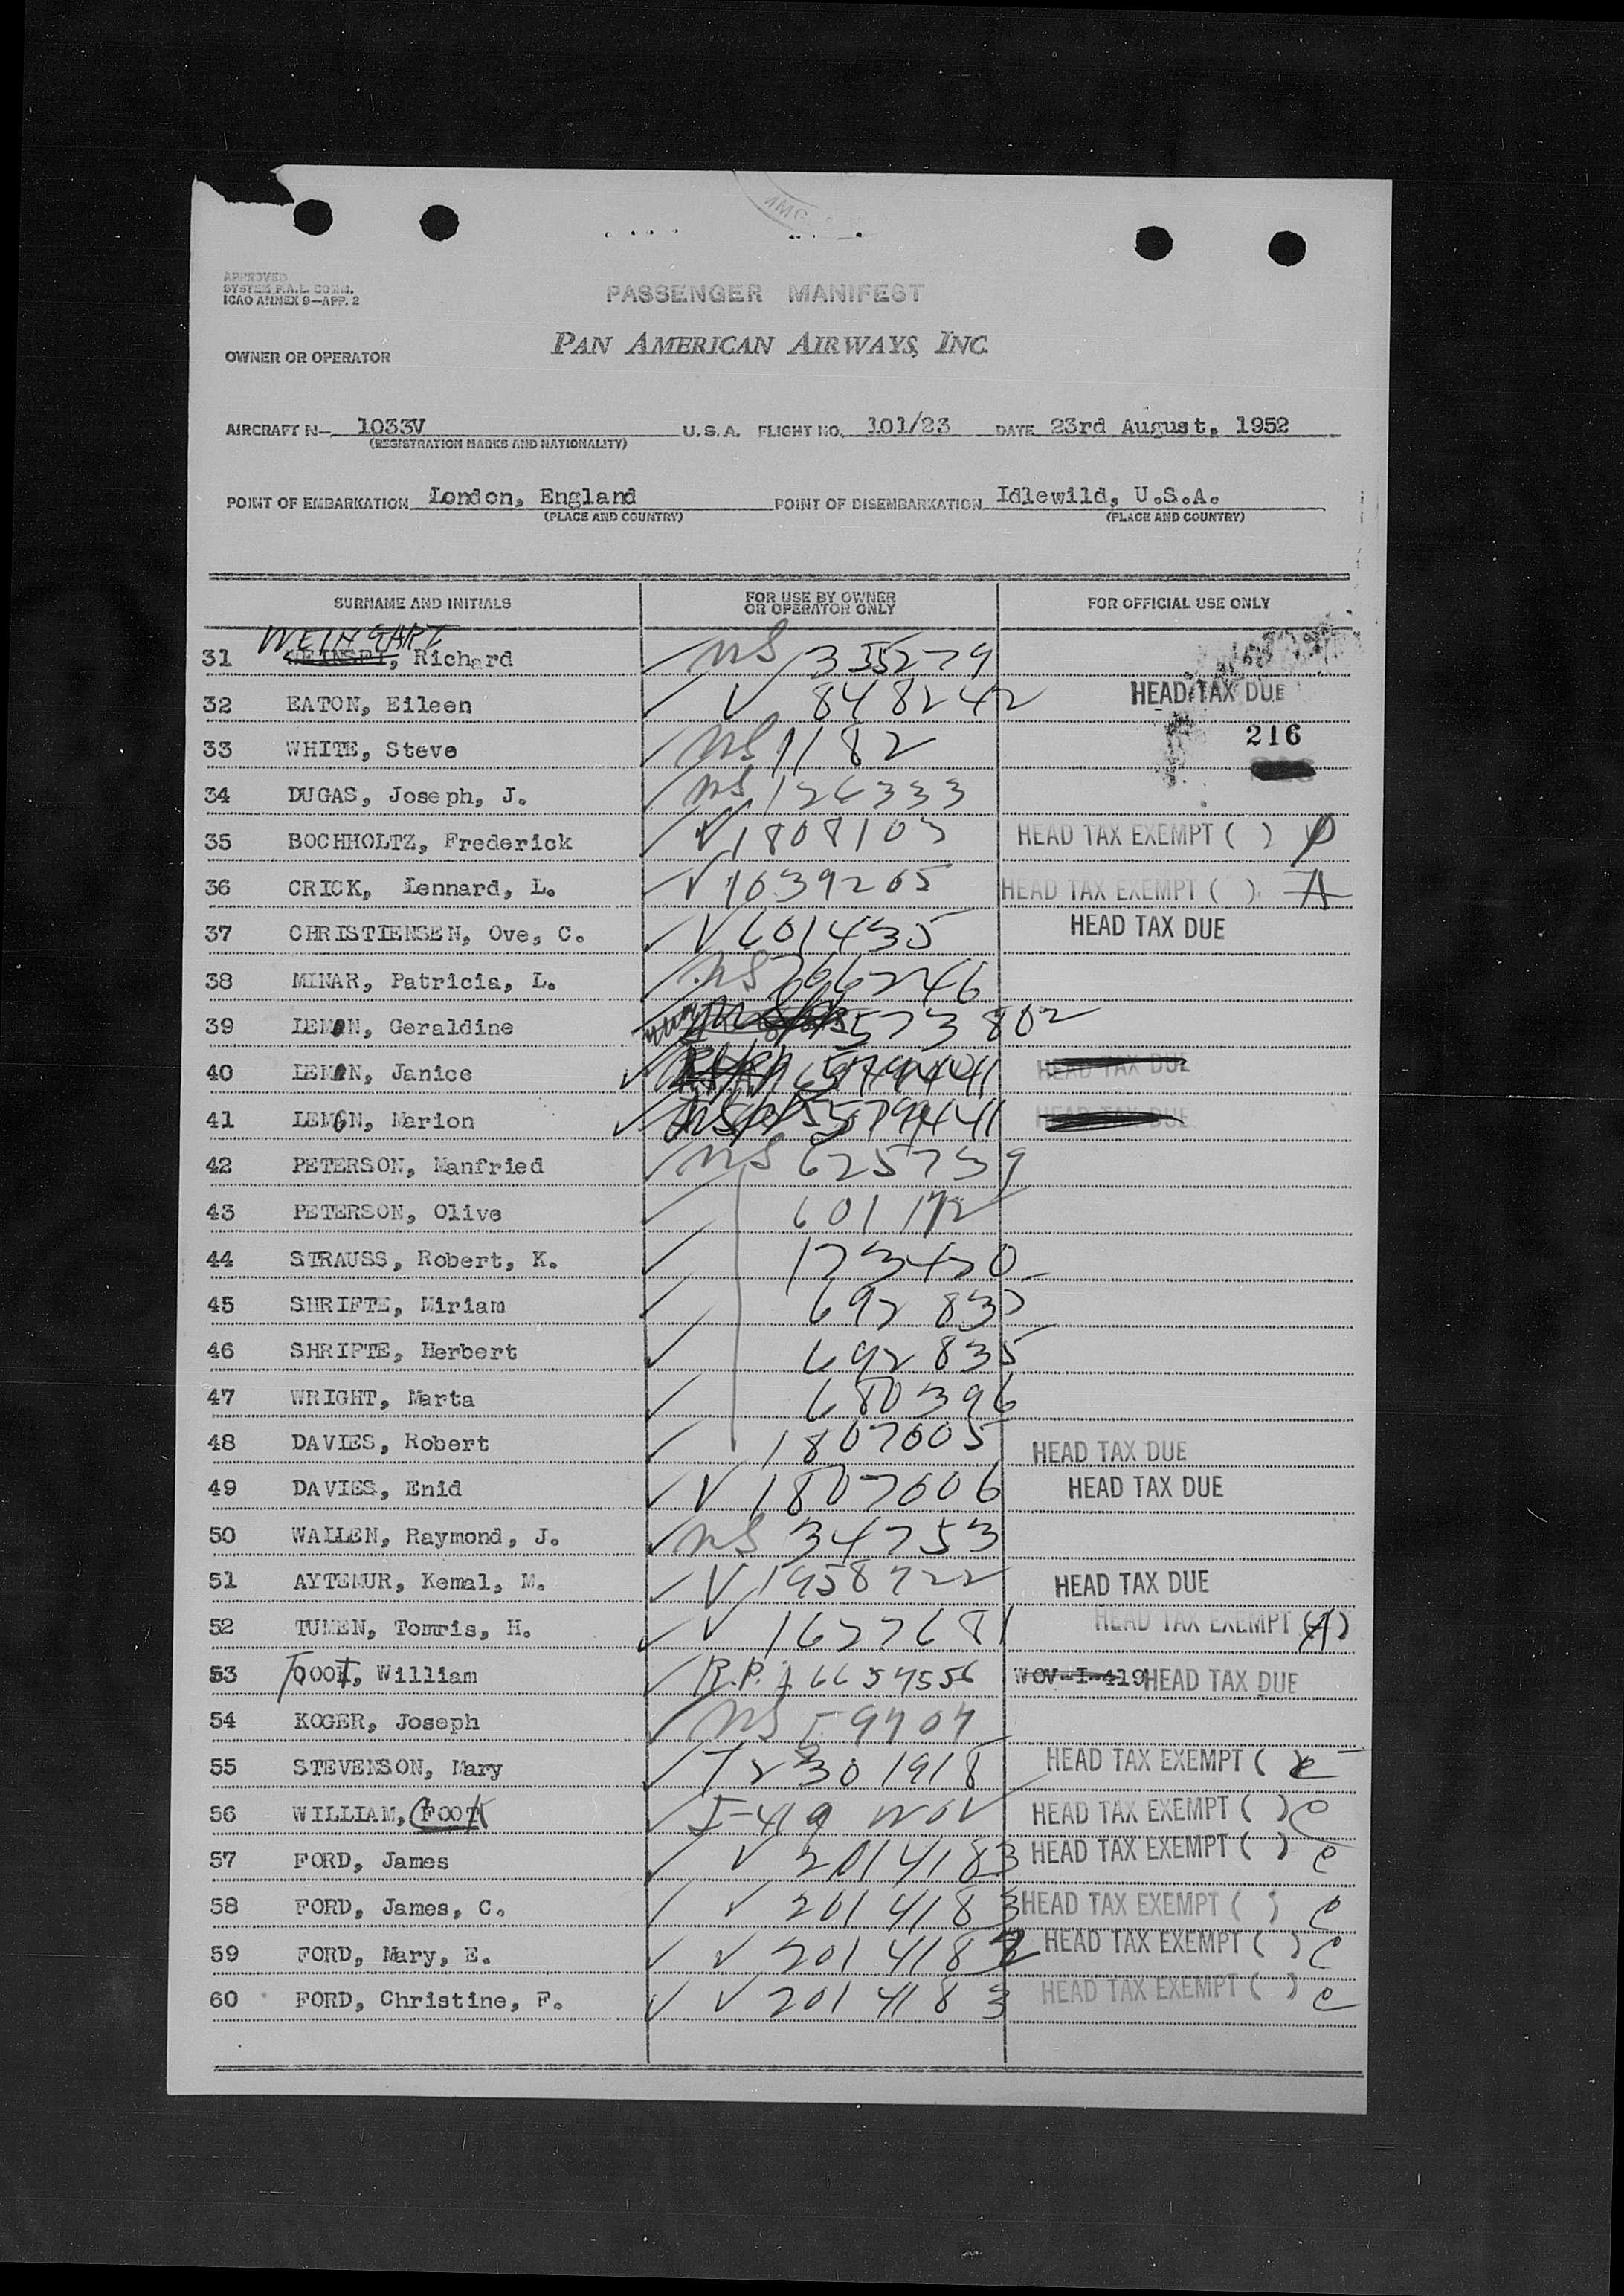 APPROVED
SYSTEM F.A.L. COMM.
ICAO ANNEX 9—APP. 2
PASSENGER MANIFEST
PAN AMERICAN AIRWAYS, INC.
OWNER OR OPERATOR
AIRCRAFT N— 1033V U.S.A. FLIGHT NO. 101/23 DATE 23rd August, 1952
(REGISTRATION MARKS AND NATIONALITY)
POINT OF EMBARKATION London, England POINT OF DISEMBARKATION Idlewild, U.S.A.
(PLACE AND COUNTRY) (PLACE AND COUNTRY)
SURNAME AND INITIALS FOR USE BY OWNER OR OPERATOR ONLY FOR OFFICIAL USE ONLY
WEINGART
31 Richard NS 335279
32 EATON, Eileen V 848242 HEAD TAX DUE
33 WHITE, Steve NS 1182 216
34 DUGAS, Joseph, J. NS 126333
35 BOCHHOLTZ, Frederick V 1808103 HEAD TAX EXEMPT ( )
36 CRICK, Lennard, L. V 1639265 HEAD TAX EXEMPT ( ) A
37 CHRISTIENSEN, Ove, C. V 601435 HEAD TAX DUE
38 MINAR, Patricia, L. NS
39 LEMON, Geraldine 573802
40 LEMON, Janice HEAD TAX DUE
41 LEMON, Marion 579441 HEAD TAX DUE
42 PETERSON, Manfried NS 625739
43 PETERSON, Olive 601172
44 STRAUSS, Robert, K. 173450
45 SHRIFTE, Miriam 692837
46 SHRIFTE, Herbert 692835
47 WRIGHT, Marta 680396
48 DAVIES, Robert 1807605 HEAD TAX DUE
49 DAVIES, Enid V 1807606 HEAD TAX DUE
50 WALLEN, Raymond, J. NS 34753
51 AYTEMUR, Kemal, M. V 1958722 HEAD TAX DUE
52 TUMEN, Tomris, H. V 1627681 HEAD TAX EXEMPT (A)
53 FOOT, William R.P. 6654556 WOV-I-419 HEAD TAX DUE
54 KOGER, Joseph NS 59704
55 STEVENSON, Mary T 2301918 HEAD TAX EXEMPT ( ) C
56 WILLIAM, FOOT I-419 WOV HEAD TAX EXEMPT ( ) C
57 FORD, James V 2014183 HEAD TAX EXEMPT ( ) C
58 FORD, James, C. V 2014183 HEAD TAX EXEMPT ( ) C
59 FORD, Mary, E. V 2014182 HEAD TAX EXEMPT ( ) C
60 FORD, Christine, F. V 2014183 HEAD TAX EXEMPT ( ) C